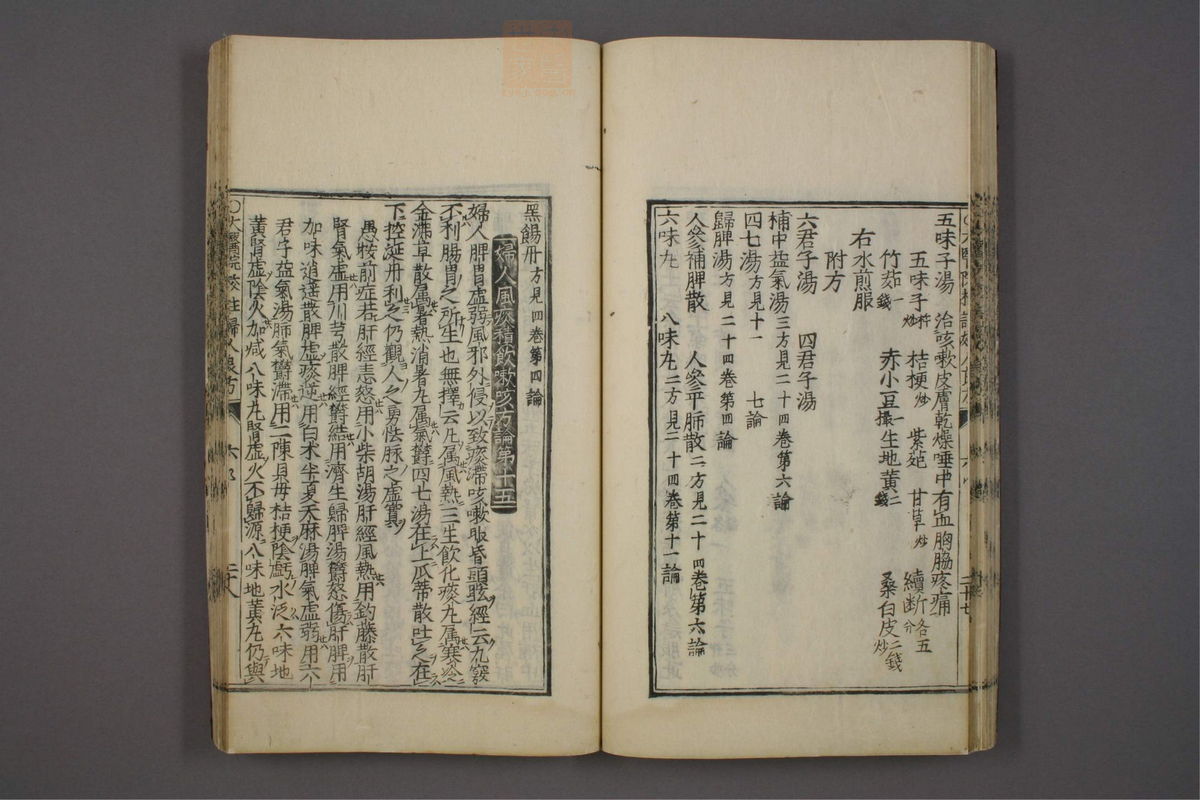 五味子湯 治咳嗽皮膚乾燥唾中有血胸膈疼痛
五味子杵炒 桔梗炒 紫菀 甘草炒 續斷各五分
竹茹一錢 赤小豆一撮 生地黃二錢 桑白皮二錢炒
右水煎服
附方
六君子湯 四君子湯
補中益氣湯三方見二十四卷第六論
四七湯方見十一 七論
歸脾湯方見二十四卷第四論
人參補脾散 人參平肺散二方見二十四卷第六論
六味丸 八味丸二方見二十四卷第十一論
黑錫丹方見四卷第四論
婦人風痰積飲嗽咳方論第十五
婦人脾胃虛弱風邪外侵以致痰滯咳嗽眩昏頭眩經云九竅
不利腸胃之所生也無擇云凡属風熱三生飲化痰丸属寒
金沸草散属暑熱消暑丸属氣欝四七湯在上瓜蒂散吐之在
下控涎丹利之仍觀人之勇怯脉之虛實
愚按前症若肝經恚怒用小柴胡湯肝經風熱用鈎藤散肝
腎氣虛用川芎散脾經欝結用濟生歸脾湯欝怒傷肝脾用
加味逍遥散脾虛痰逆用白术半夏天麻湯脾氣虛弱用六
君子益氣湯肺氣欝滯用二陳貝母桔梗陰虛水泛六味地
黃腎虛陰火加减八味丸腎虛火不歸源八味地黃丸仍與
婦人良方
二十八